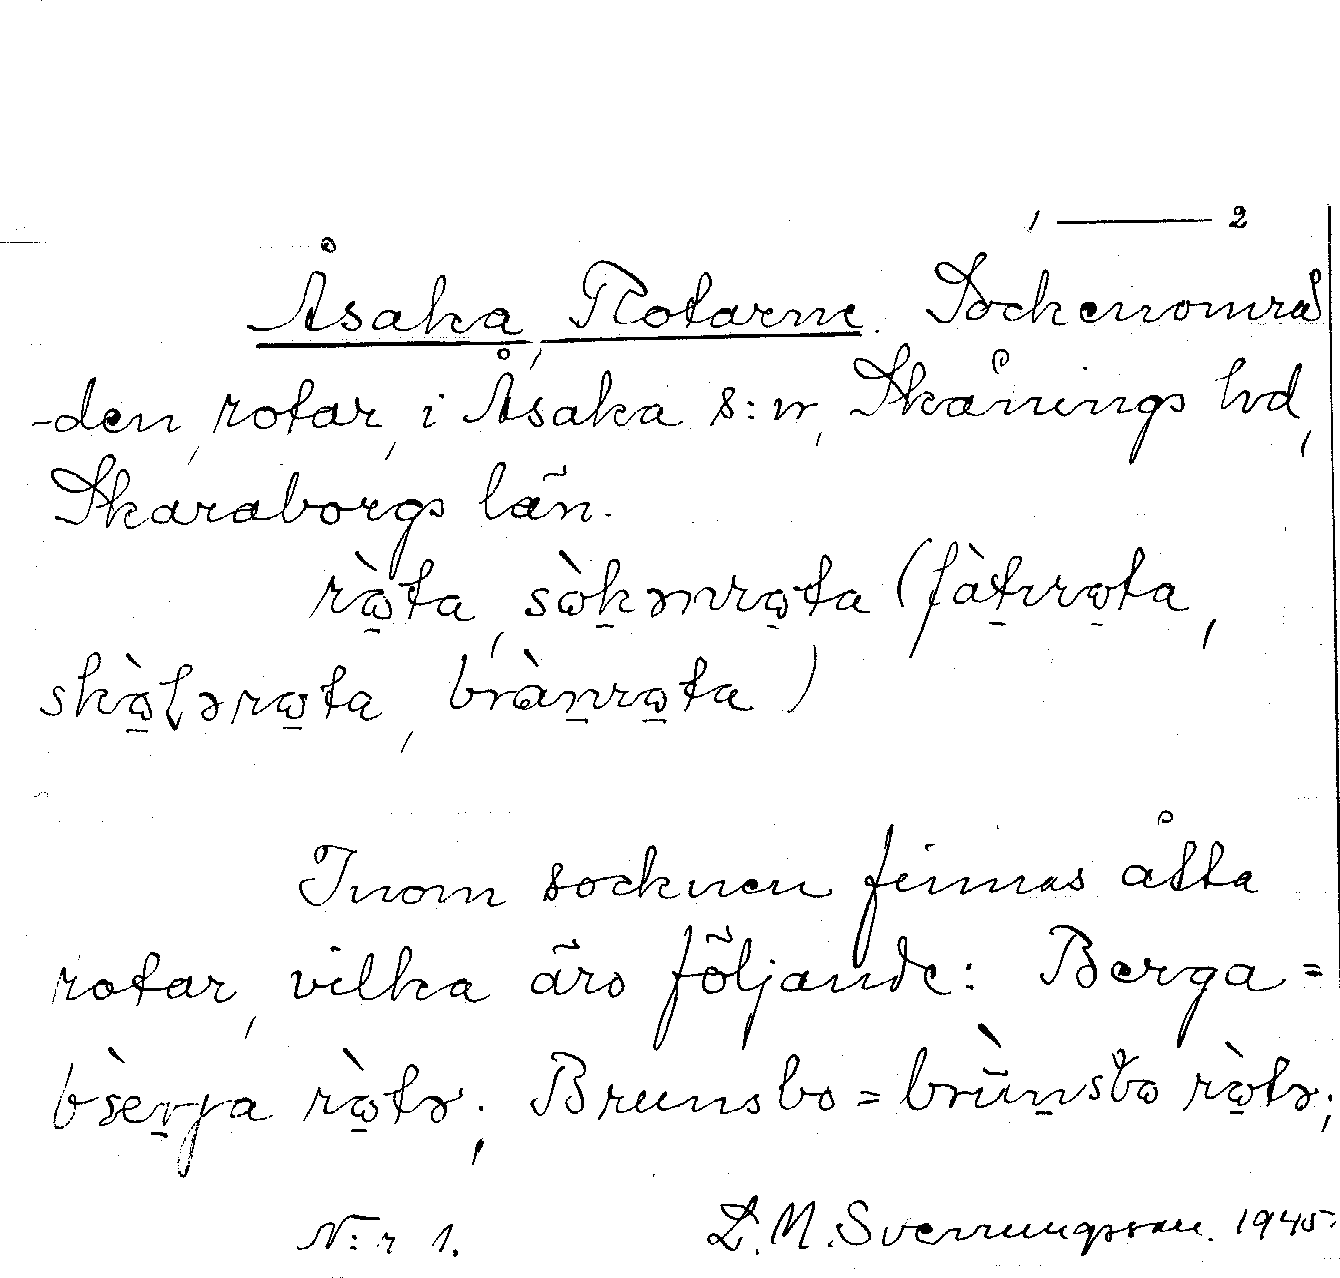 1 — 2
Åsaka, Rotarne. Sockenområ
-den, rotar, i Åsaka s:n, Skånings hd,
Skaraborgs län.
ròta, sòkənrota (fàtırota,
skòlərota, brànrota)
Inom socknen finnas åtta
rotar, vilka äro följande: Berga =
bærja ròtə; Brunsbo = brùnsbo ròtə;
N:r 1. D. M. Sverrungsson. 1945.